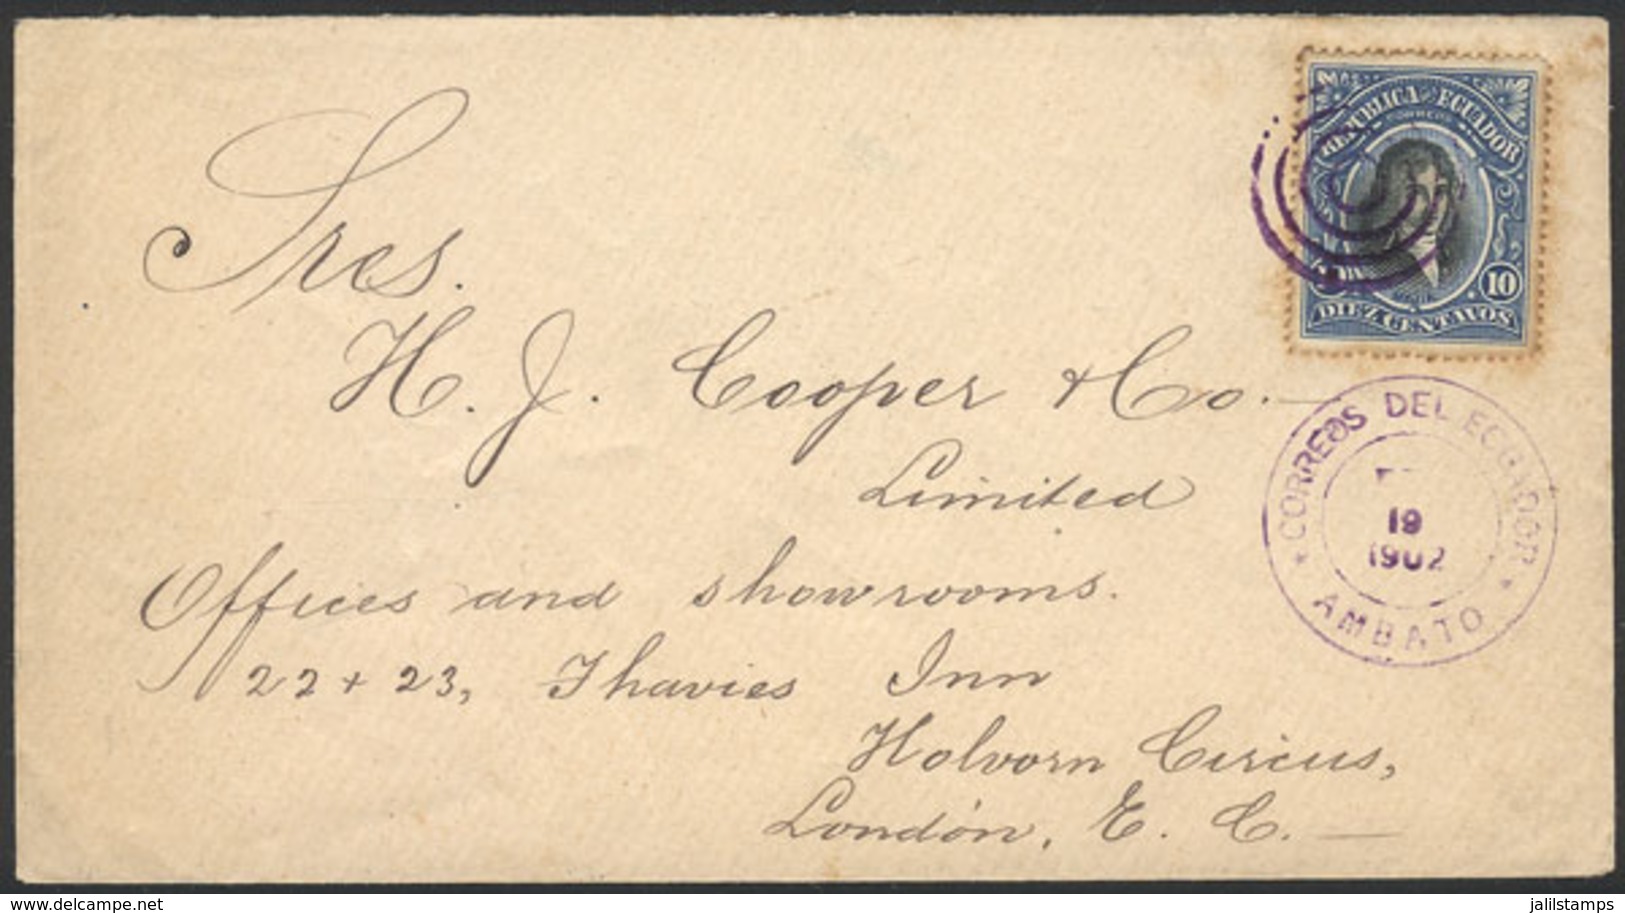 Sres.
H. J. Cooper & Co.
Limited
Offices and showrooms.
22 + 23, Thavies Inn
Holvorn Circus,
Londón, E. C.
REPUBLICA DEL ECUADOR
CORREOS
10
DIEZ CENTAVOS
CORREOS DEL ECUADOR
19
1902
AMBATO
www.delcampe.net
jalilstamps